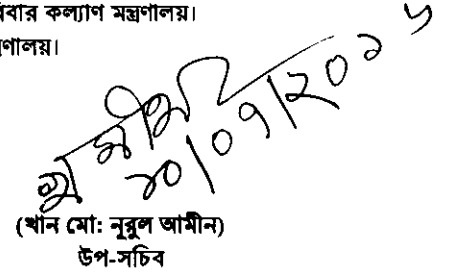 বার কল্যাণ মন্ত্রণালয়।
ণালয়।
২০/০৭/২০১৬
(খান মো: নূরুল আমীন)
উপ-সচিব